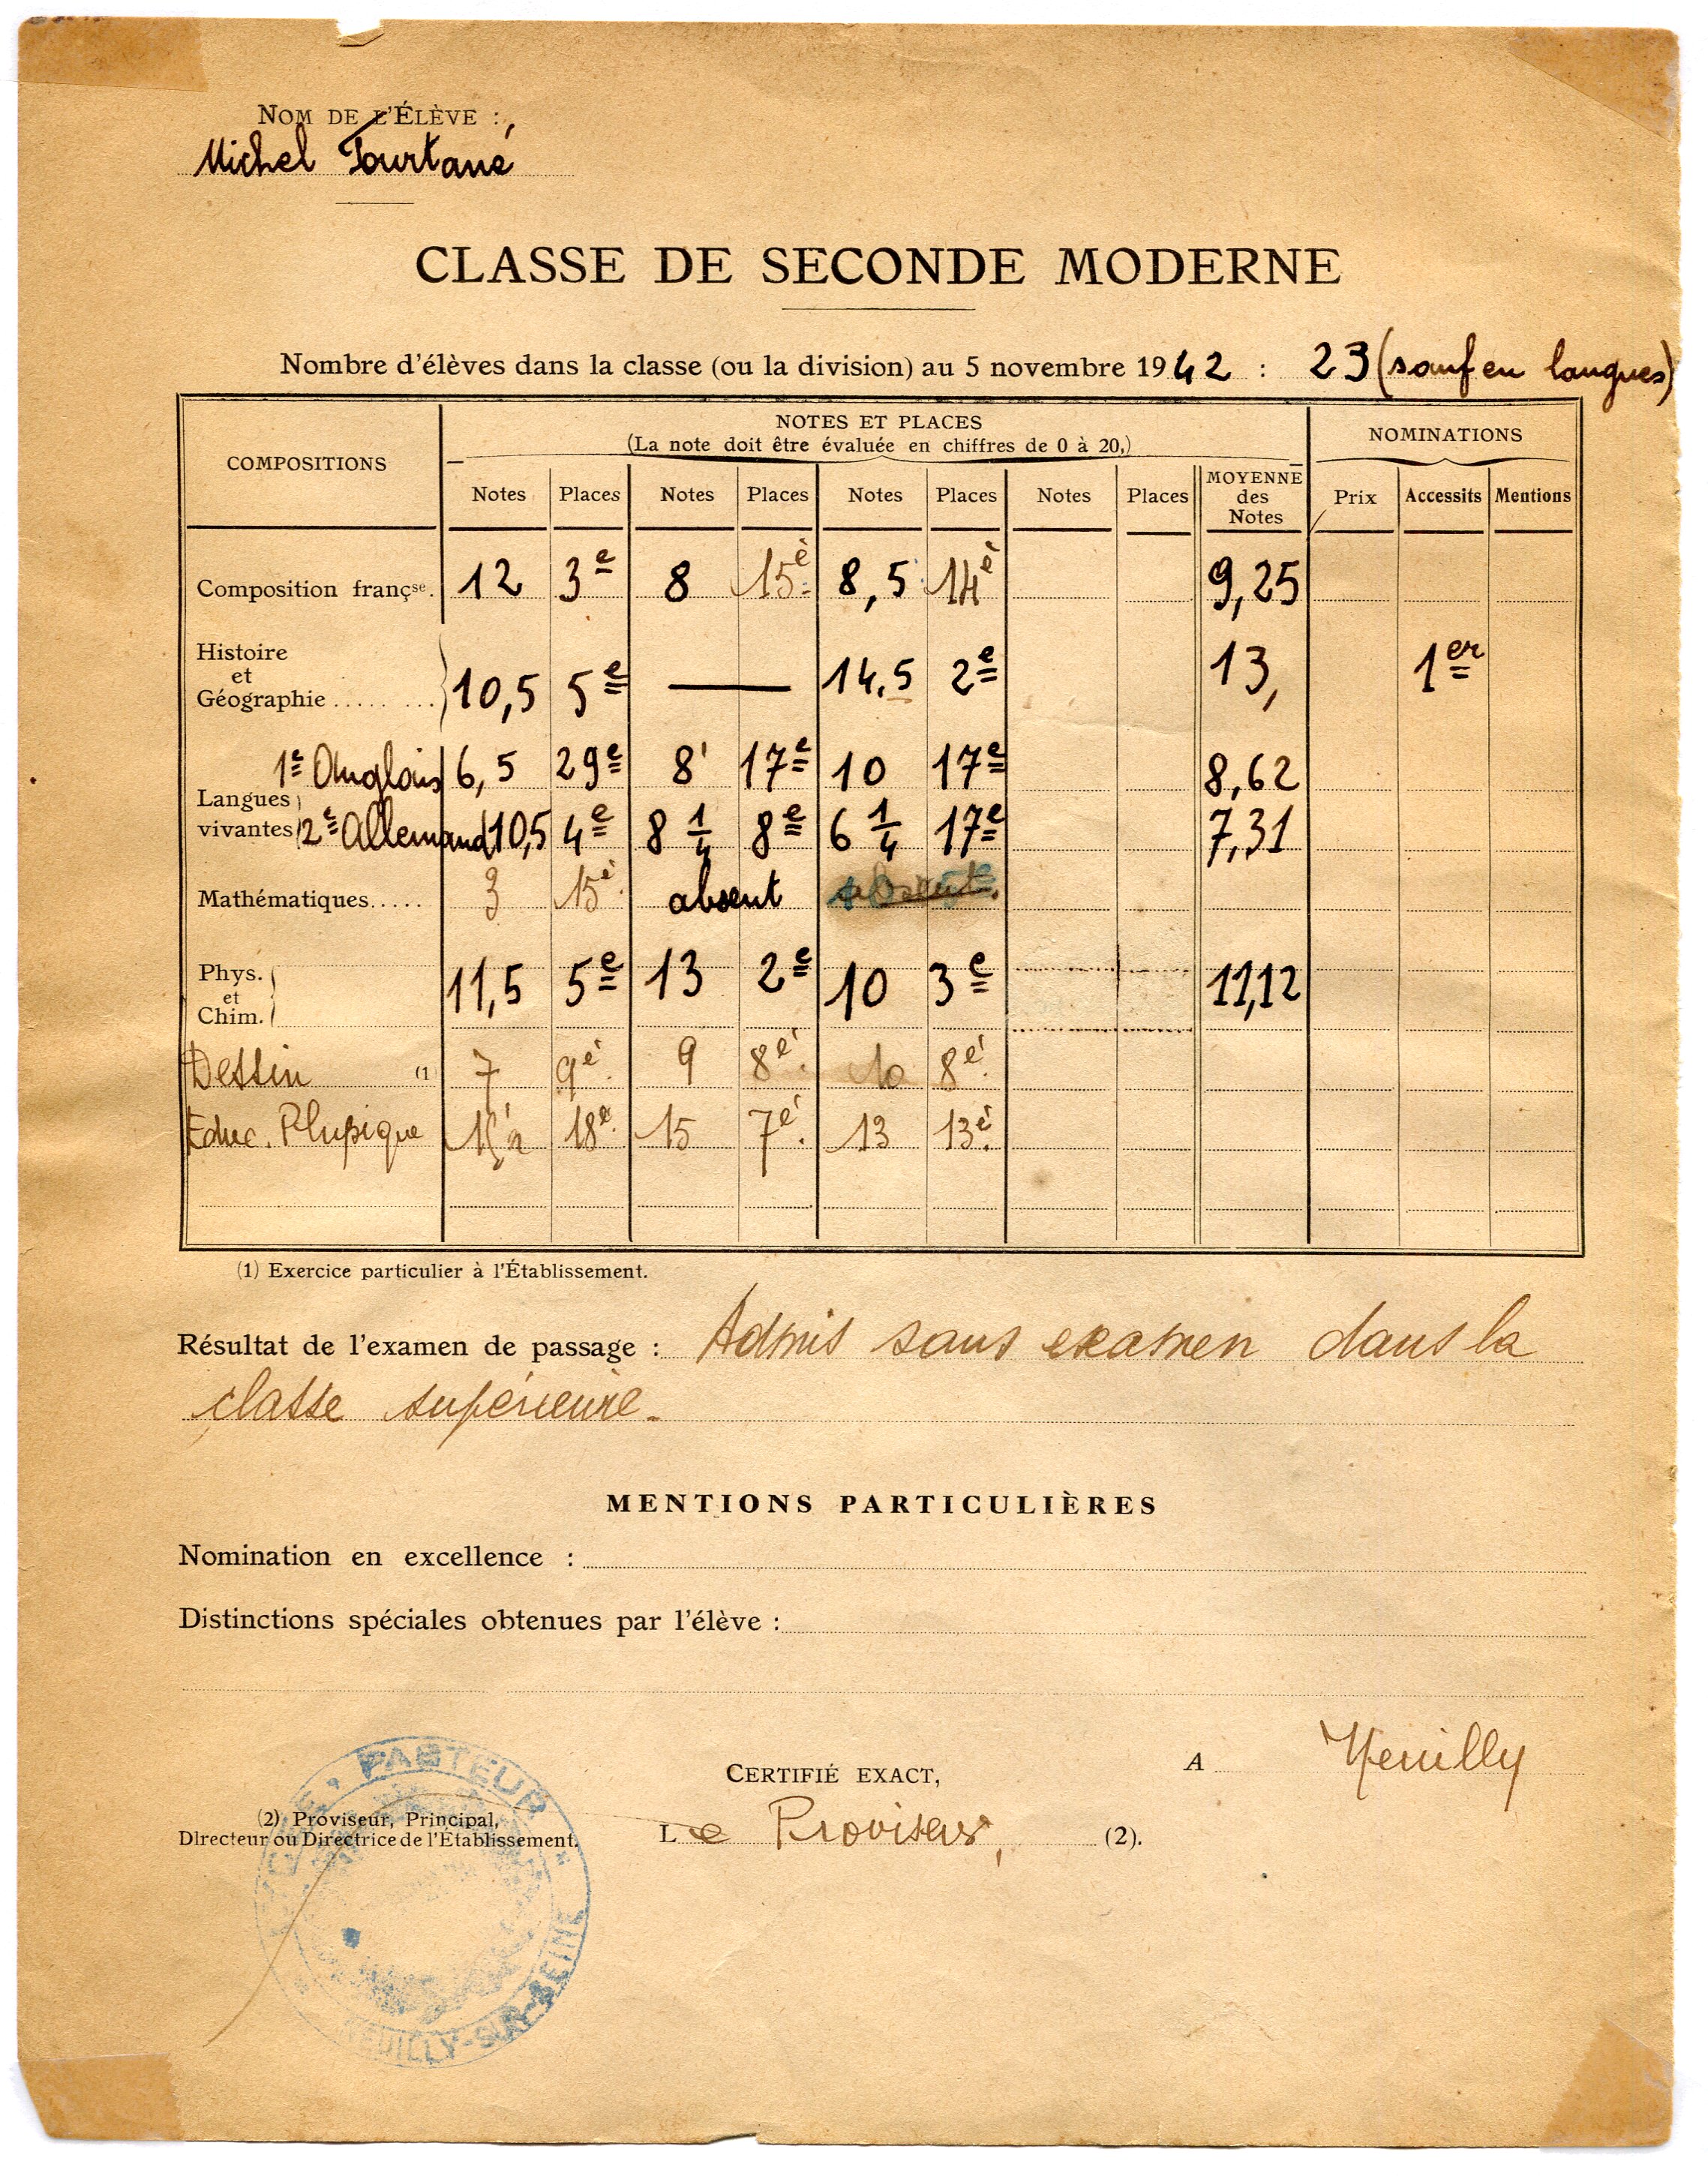 NOM DE L'ÉLÈVE :
Michel Tourtané
CLASSE DE SECONDE MODERNE
Nombre d'élèves dans la classe (ou la division) au 5 novembre 1942 : 23 (sauf en langues)
COMPOSITIONS
NOTES ET PLACES
(La note doit être évaluée en chiffres de 0 à 20,)
NOMINATIONS
Notes Places Notes Places Notes Places Notes Places MOYENNE des Notes Prix Accessits Mentions
Composition françse. 12 3e 8 15è 8,5 14è 9,25
Histoire et Géographie 10,5 5e — 14,5 2e 13, 1er
Langues vivantes
1e Anglais 6,5 29e 8 17e 10 17e 8,62
2e Allemand 10,5 4e 8 1/4 8e 6 1/4 17e 7,31
Mathématiques..... 3 15è absent
Phys. et Chim. 11,5 5e 13 2e 10 3e 11,12
Dessin (1 7 9è 9 8è 10 8è
Educ. Physique 18è 15 7è 13 13è
(1) Exercice particulier à l'Établissement.
Résultat de l'examen de passage : Admis sans examen dans la
classe supérieure.
MENTIONS PARTICULIÈRES
Nomination en excellence :
Distinctions spéciales obtenues par l'élève :
CERTIFIÉ EXACT,
A Neuilly
(2) Proviseur, Principal,
Directeur ou Directrice de l'Établissement.
Le Proviseur, (2).
PASTEUR
NEUILLY-SUR-SEINE